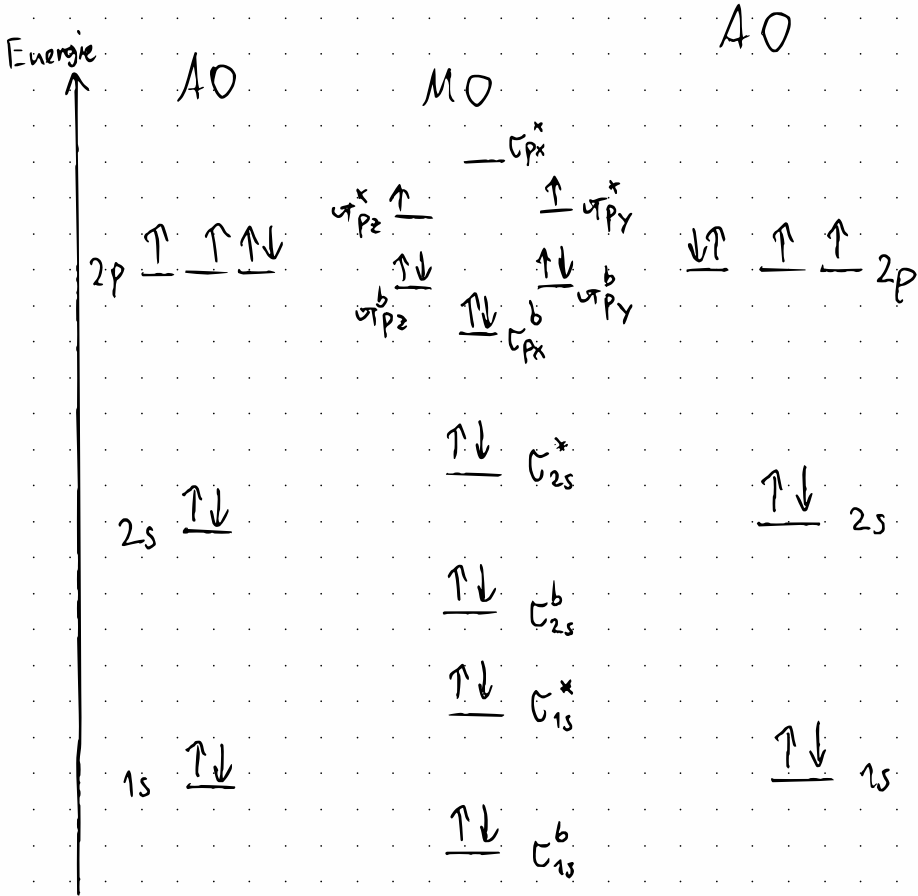 Energie
AO
MO
AO
σ*px
π*pz ↑
↑ π*py
2p ↑ ↑ ↑↓
↓↑ ↑ ↑ 2p
↑↓ πbpz
↑↓ πbpy
↑↓ σbpx
↑↓ σ*2s
2s ↑↓
↑↓ 2s
↑↓ σb2s
↑↓ σ*1s
1s ↑↓
↑↓ 1s
↑↓ σb1s